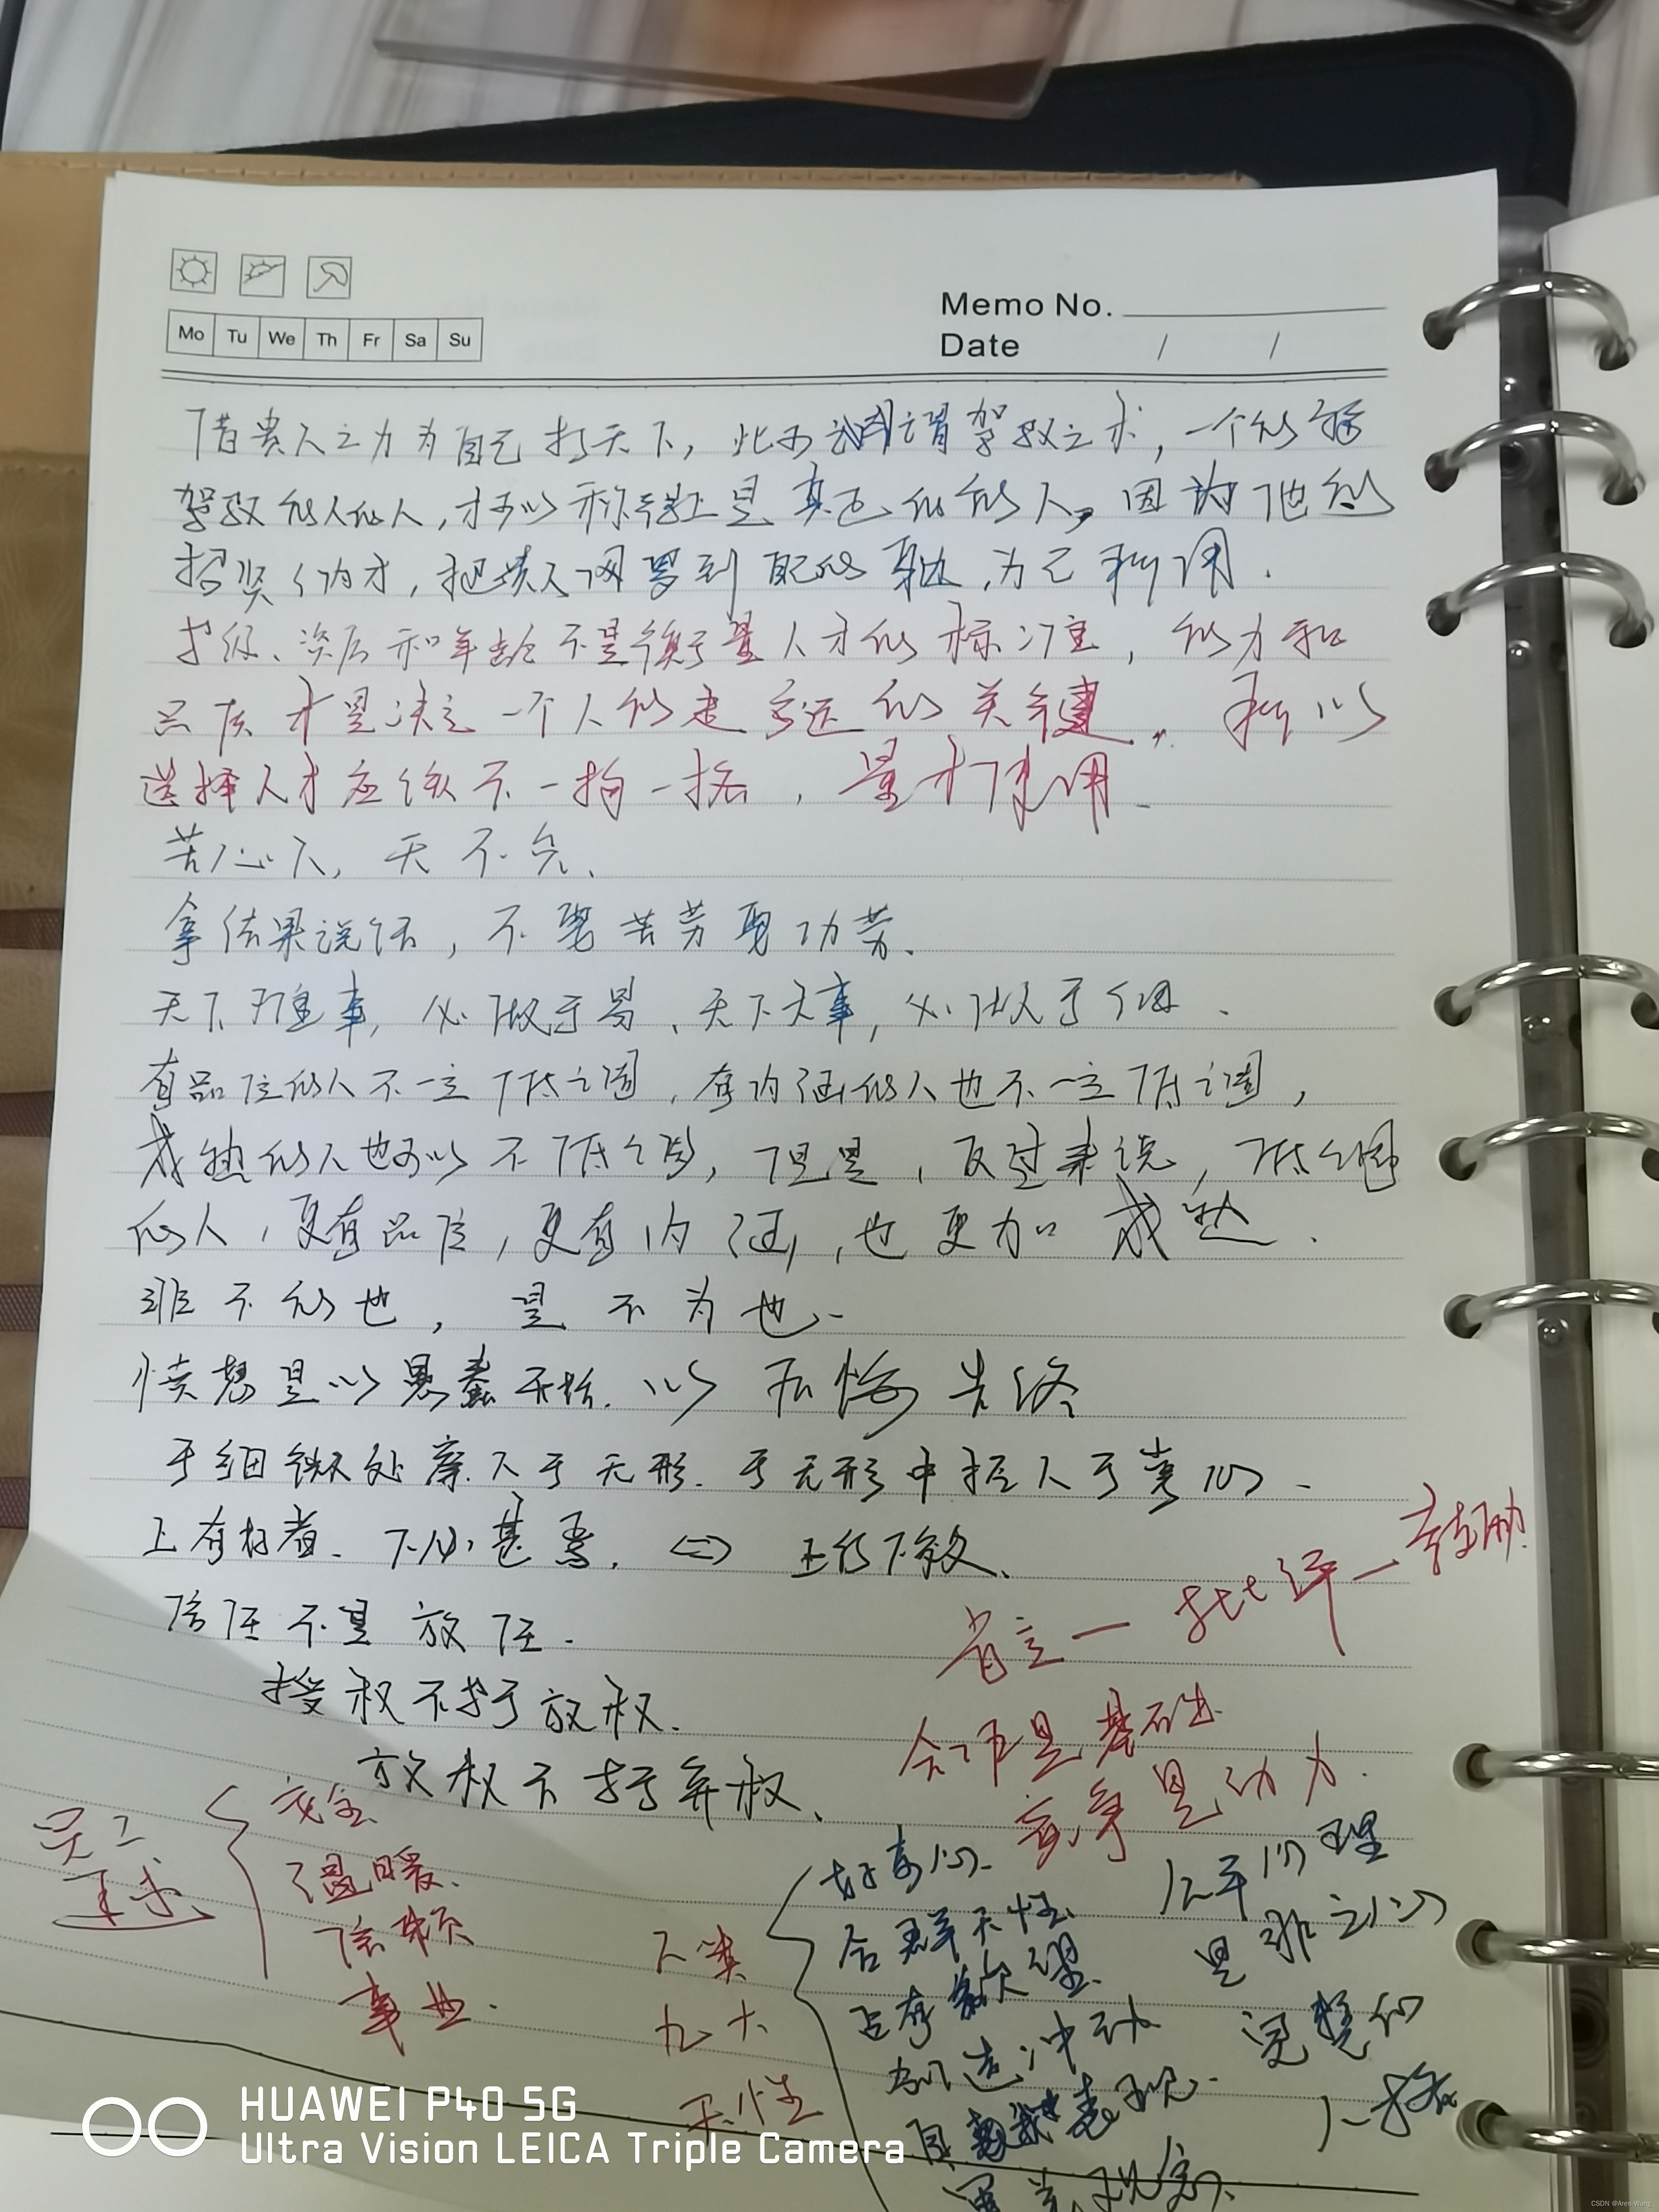 Mo Tu We Th Fr Sa Su
Memo No.
Date / /
借贵人之力为自己打天下，此可谓驾驭之术，一个能够
驾驭能人的人，才可以称得上是真正的能人，因为他能
招贤纳才，把贵人网罗到自己的身边，为己所用．
学级、资历和年龄不是衡量人才的标准，能力和
品质才是决定一个人能走多远的关键．所以
选择人才应该不一拘一格，量才使用
苦心人，天不负．
拿结果说话，不要苦劳要功劳．
天下难事，必做于易、天下大事，必做于细．
有品位的人不一定低调，有内涵的人也不一定低调，
成熟的人也可以不低调，但是，反过来说，低调
的人，更有品位，更有内涵，也更加成熟．
非不能也，是不为也．
愤怒是以愚蠢开始．以后悔告终
于细微处察人于无形．于无形中控人于掌心．
上有好者．下必甚焉． <=> 上行下效、
信任不是放任．
授权不等于放权．
放权不等于弃权、
肯定一批评一鼓励
合作是基础
竞争是动力．
员工
需求
安全
温暖
信赖
事业．
人类
九大
天性
好奇心
合群天性
占有欲望
创造冲动
自我表现．
公平心理
是非之心
完整的
人格
HUAWEI P40 5G
Ultra Vision LEICA Triple Camera
CSDN @Ares-Wang